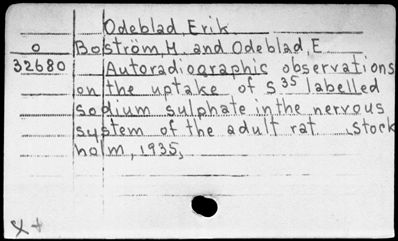 Odeblad, Erik
o Boström, H. and Odeblad, E
32680 Autoradiographic observations
on the uptake of S35 labelled
sodium sulphate in the nervous
system of the adult rat Stock
holm, 1935,